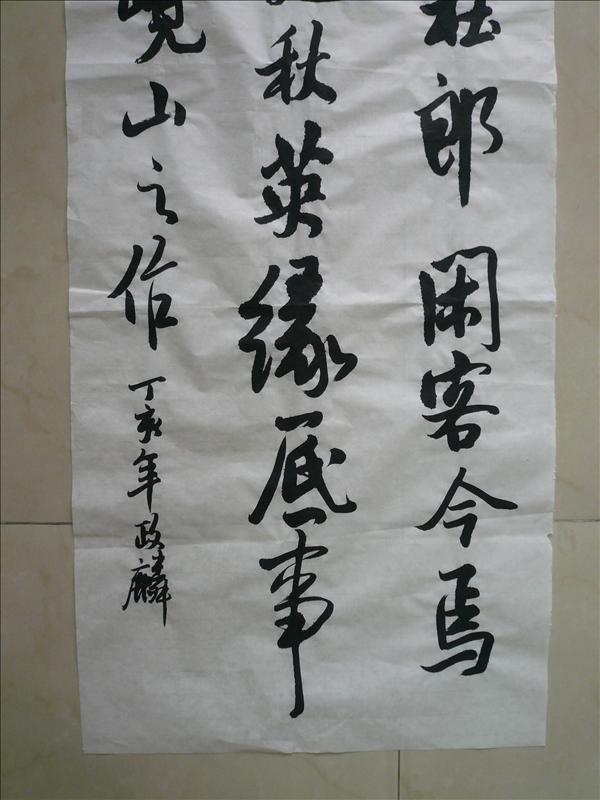 杜郎闲客今焉
秋英缘底事
岘山之作
丁亥年政麟